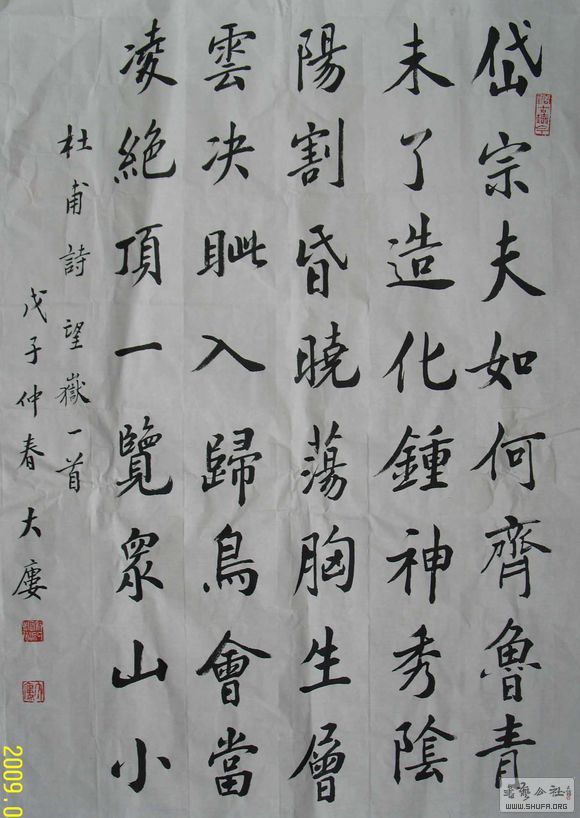 岱宗夫如何齊魯青
未了造化鍾神秀陰
陽割昏曉蕩胸生層
雲决眦入歸鳥會當
凌絶頂一覽眾山小
杜甫詩望嶽一首
戊子仲春大廔
2009.0
WWW.SHUFA.ORG